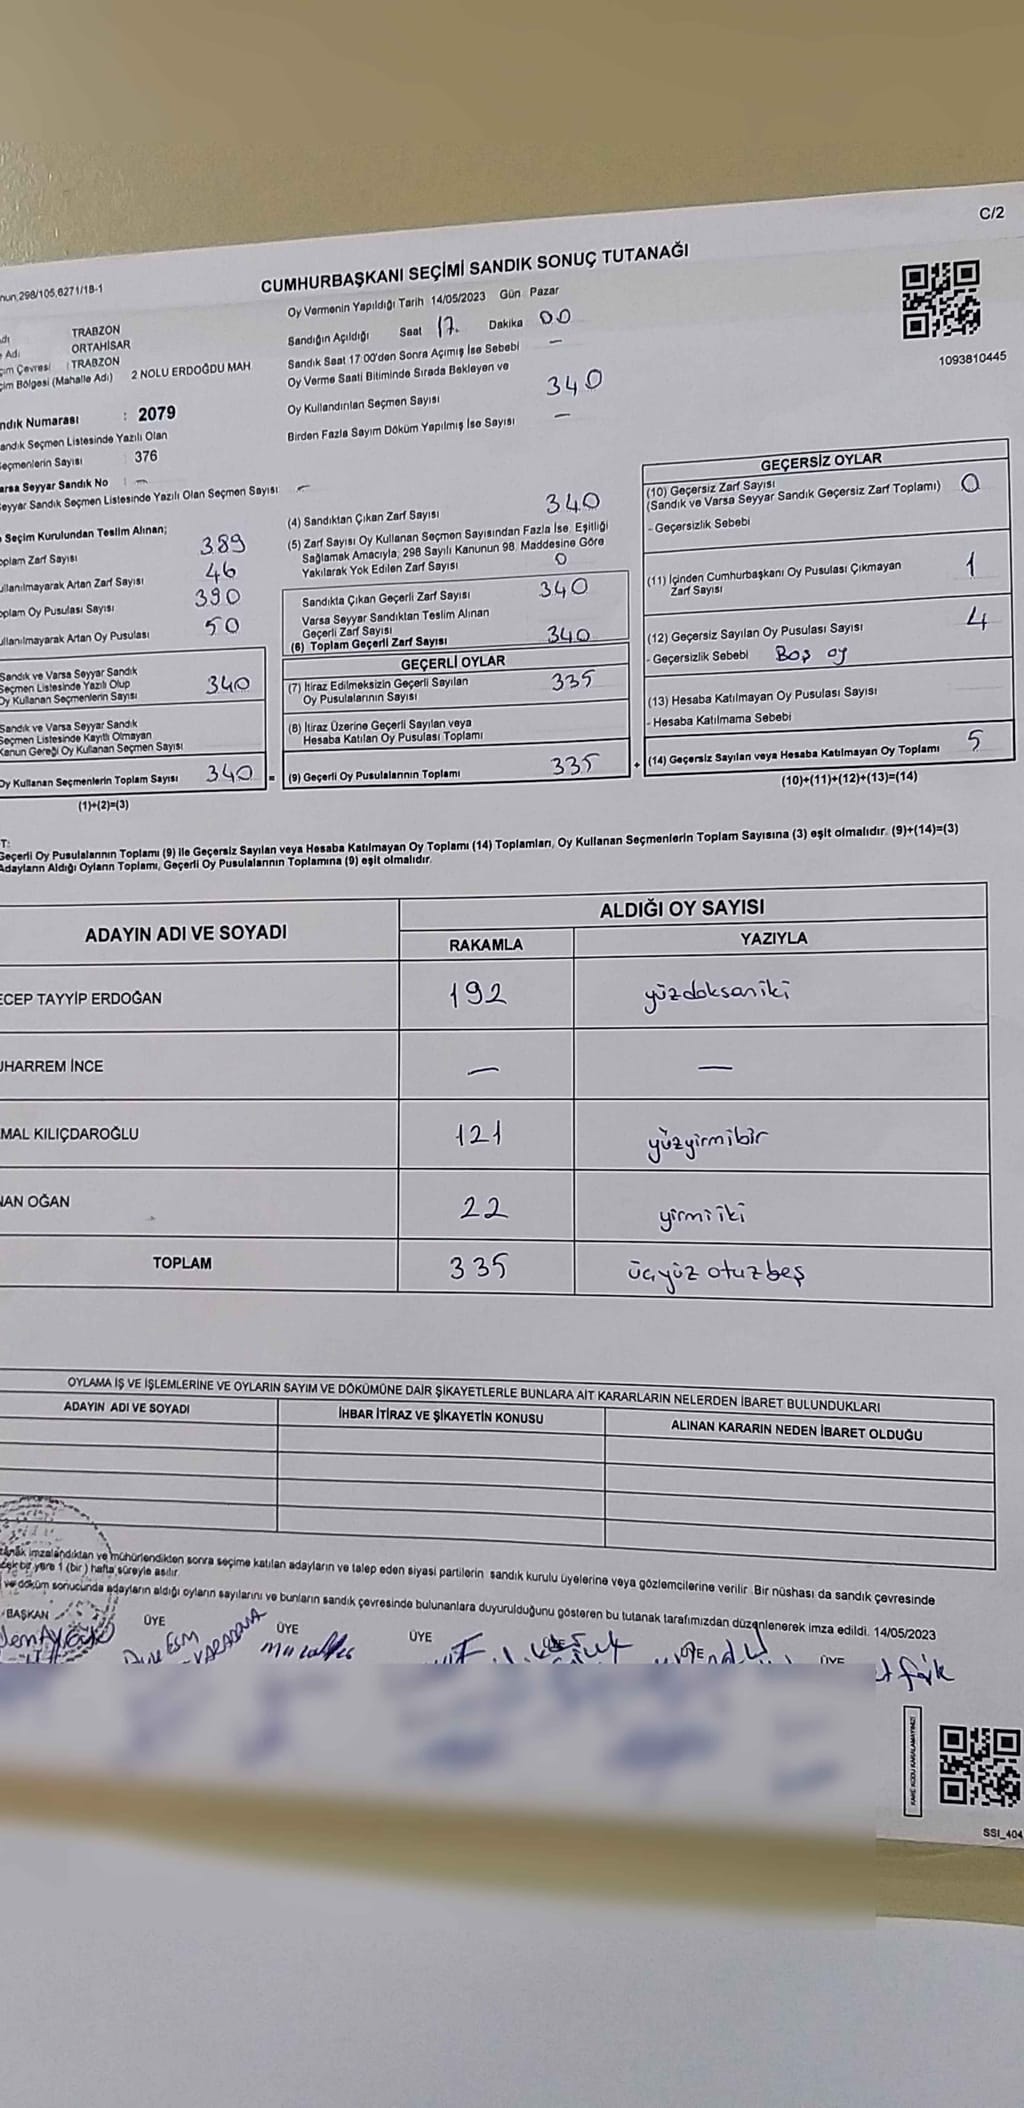 C/2
298/105,6271/18-1
CUMHURBAŞKANI SEÇİMİ SANDIK SONUÇ TUTANAĞI
1093810445
TRABZON
Adı ORTAHİSAR
Çevresi : TRABZON
Bölgesi (Mahalle Adı) 2 NOLU ERDOĞDU MAH
Numarası : 2079
Seçmen Listesinde Yazılı Olan
Sayısı 376
Seyyar Sandık No : —
Sandık Seçmen Listesinde Yazılı Olan Seçmen Sayısı —
Oy Vermenin Yapıldığı Tarih 14/05/2023 Gün Pazar
Sandığın Açıldığı Saat 17. Dakika 00
Sandık Saat 17:00'den Sonra Açımış İse Sebebi —
Oy Verme Saati Bitiminde Sırada Bekleyen ve
Oy Kullandırılan Seçmen Sayısı 340
Birden Fazla Sayım Döküm Yapılmış İse Sayısı —
Seçim Kurulundan Teslim Alınan;
Zarf Sayısı 389
Artan Zarf Sayısı 46
Oy Pusulası Sayısı 390
Artan Oy Pusulası 50
Sandık ve Varsa Seyyar Sandık
Seçmen Listesinde Yazılı Olup
Oy Kullanan Seçmenlerin Sayısı 340
Sandık ve Varsa Seyyar Sandık
Seçmen Listesinde Kayıtlı Olmayan
Kanun Gereği Oy Kullanan Seçmen Sayısı
Oy Kullanan Seçmenlerin Toplam Sayısı 340 =
(1)+(2)=(3)
(4) Sandıktan Çıkan Zarf Sayısı 340
(5) Zarf Sayısı Oy Kullanan Seçmen Sayısından Fazla İse, Eşitliği
Sağlamak Amacıyla, 298 Sayılı Kanunun 98. Maddesine Göre
Yakılarak Yok Edilen Zarf Sayısı 0
Sandıkta Çıkan Geçerli Zarf Sayısı 340
Varsa Seyyar Sandıktan Teslim Alınan
Geçerli Zarf Sayısı
(6) Toplam Geçerli Zarf Sayısı 340
GEÇERLİ OYLAR
(7) İtiraz Edilmeksizin Geçerli Sayılan
Oy Pusulalarının Sayısı 335
(8) İtiraz Üzerine Geçerli Sayılan veya
Hesaba Katılan Oy Pusulası Toplamı
(9) Geçerli Oy Pusulalarının Toplamı 335 +
GEÇERSİZ OYLAR
(10) Geçersiz Zarf Sayısı
(Sandık ve Varsa Seyyar Sandık Geçersiz Zarf Toplamı) 0
- Geçersizlik Sebebi
(11) İçinden Cumhurbaşkanı Oy Pusulası Çıkmayan
Zarf Sayısı 1
(12) Geçersiz Sayılan Oy Pusulası Sayısı 4
- Geçersizlik Sebebi Boş oy
(13) Hesaba Katılmayan Oy Pusulası Sayısı
- Hesaba Katılmama Sebebi
(14) Geçersiz Sayılan veya Hesaba Katılmayan Oy Toplamı 5
(10)+(11)+(12)+(13)=(14)
T:
Geçerli Oy Pusulalarının Toplamı (9) ile Geçersiz Sayılan veya Hesaba Katılmayan Oy Toplamı (14) Toplamları, Oy Kullanan Seçmenlerin Toplam Sayısına (3) eşit olmalıdır. (9)+(14)=(3)
Adayların Aldığı Oyların Toplamı, Geçerli Oy Pusulalarının Toplamına (9) eşit olmalıdır.
ADAYIN ADI VE SOYADI ALDIĞI OY SAYISI
RAKAMLA YAZIYLA
ECEP TAYYİP ERDOĞAN 192 yüzdoksaniki
UHARREM İNCE — —
MAL KILIÇDAROĞLU 121 yüzyirmibir
NAN OĞAN 22 yirmiiki
TOPLAM 335 üçyüz otuzbeş
OYLAMA İŞ VE İŞLEMLERİNE VE OYLARIN SAYIM VE DÖKÜMÜNE DAİR ŞİKAYETLERLE BUNLARA AİT KARARLARIN NELERDEN İBARET BULUNDUKLARI
ADAYIN ADI VE SOYADI İHBAR İTİRAZ VE ŞİKAYETİN KONUSU ALINAN KARARIN NEDEN İBARET OLDUĞU
imzalandıktan ve mühürlendikten sonra seçime katılan adayların ve talep eden siyasi partilerin sandık kurulu üyelerine veya gözlemcilerine verilir. Bir nüshası da sandık çevresinde
bir yere 1 (bir) hafta süreyle asılır.
ve döküm sonucunda adayların aldığı oyların sayılarını ve bunların sandık çevresinde bulunanlara duyurulduğunu gösteren bu tutanak tarafımızdan düzenlenerek imza edildi. 14/05/2023
BAŞKAN ÜYE ÜYE ÜYE ÜYE ÜYE
KARE KODU KARALAMAYINIZ!
SSI_404